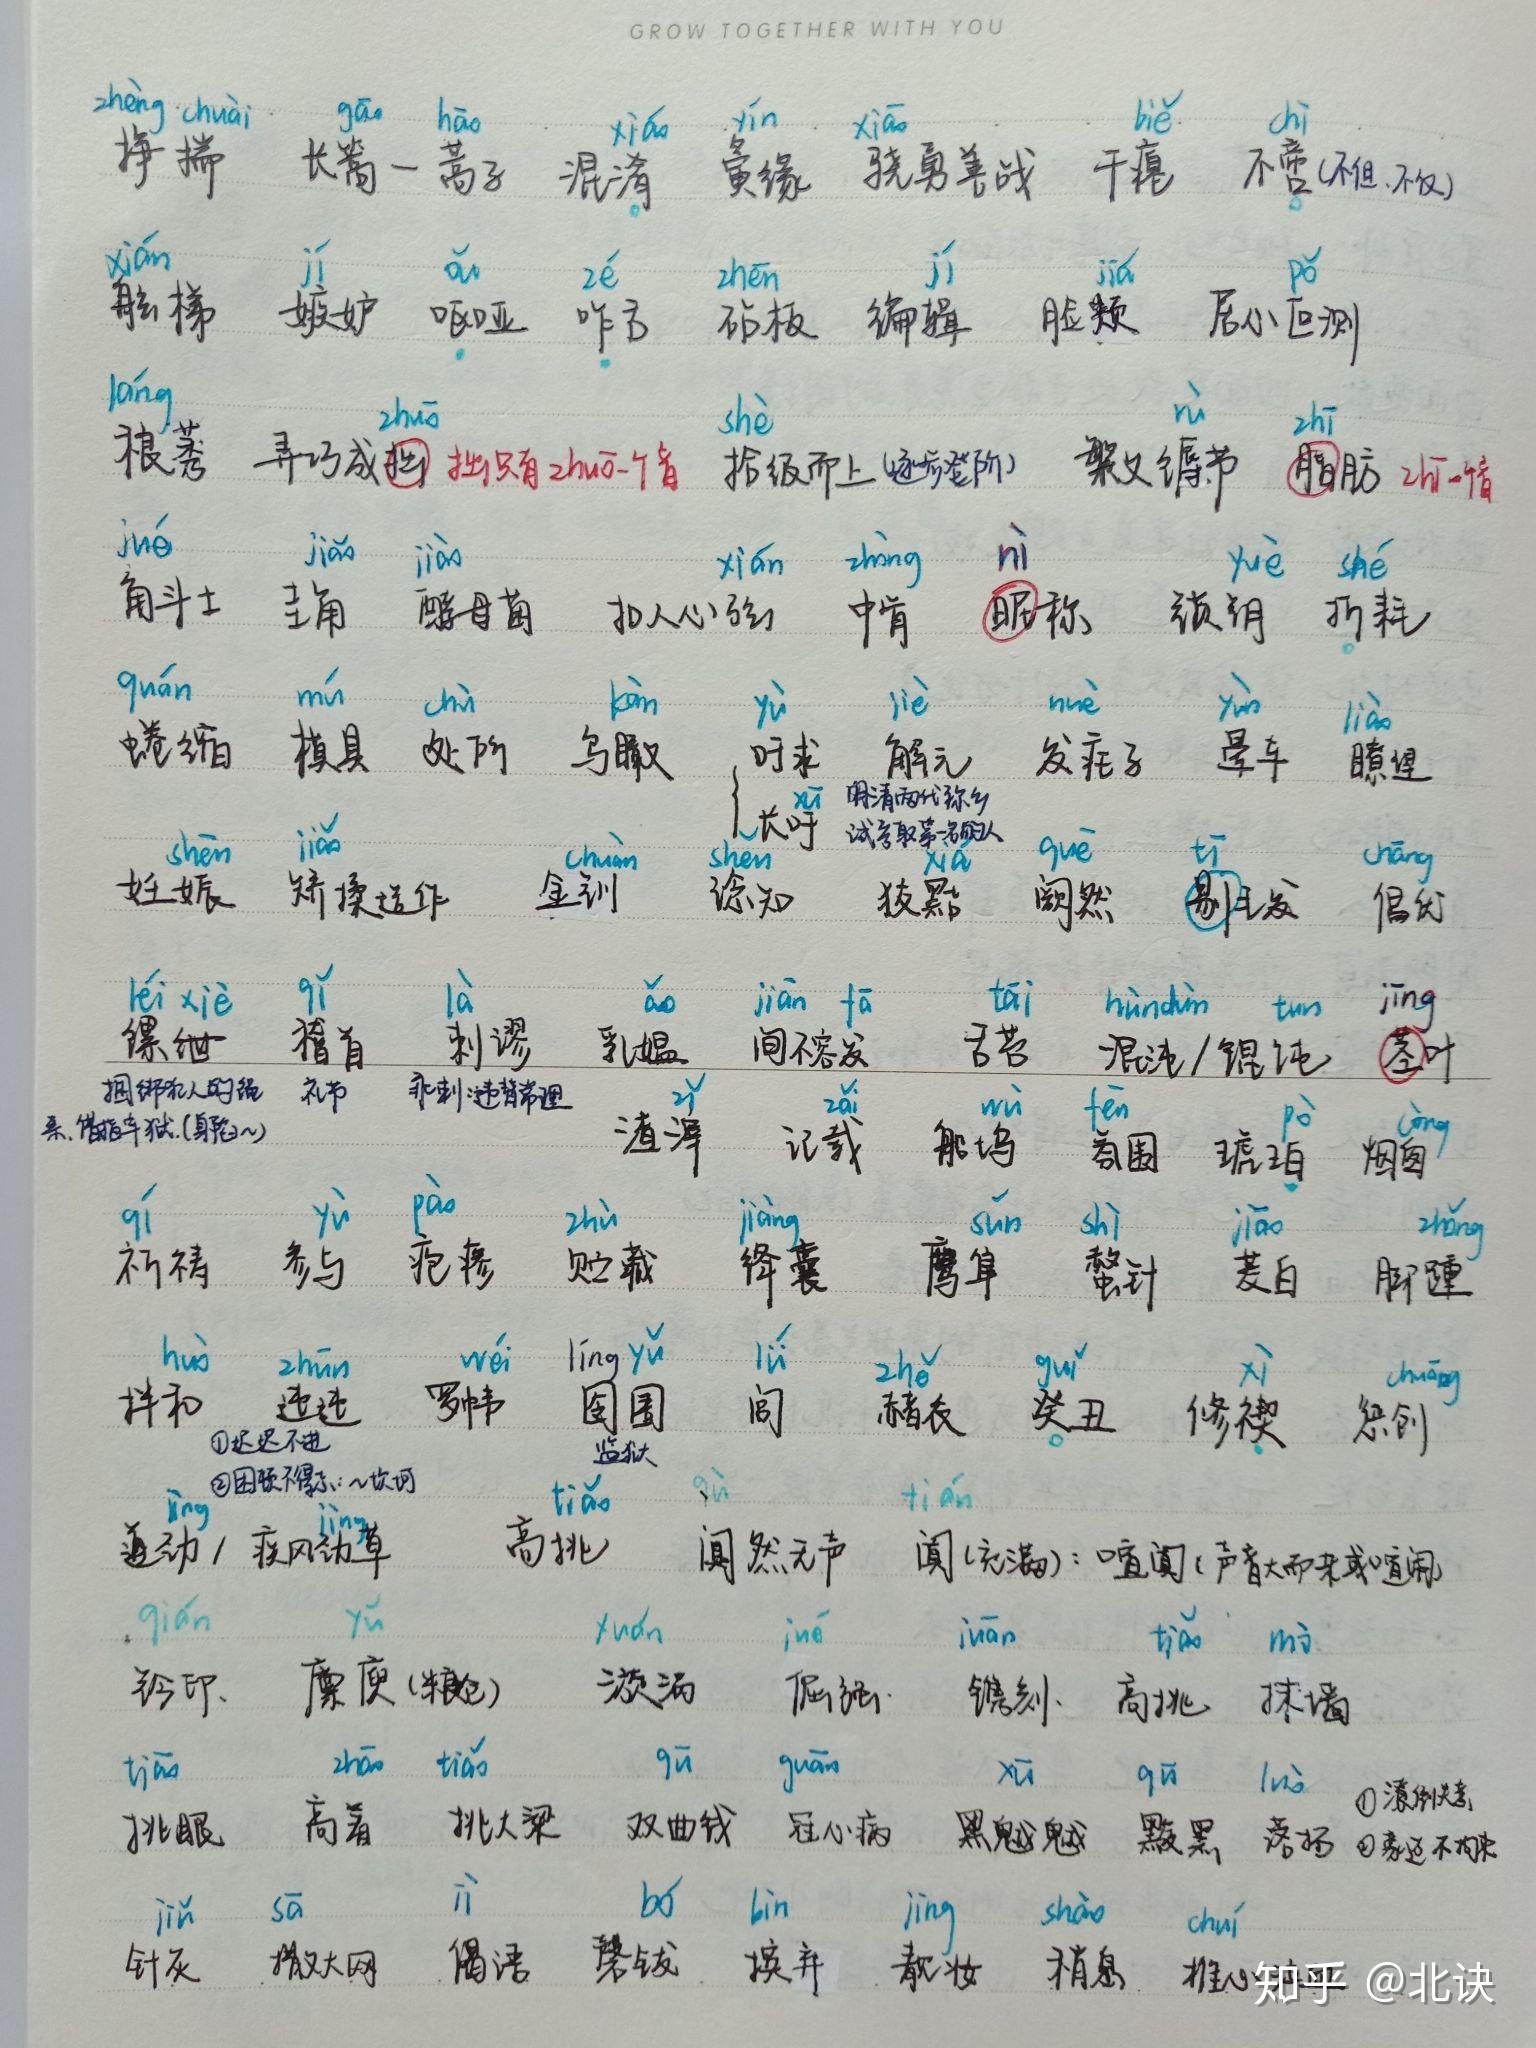 GROW TOGETHER WITH YOU
zhèng chuài gāo hāo xiáo yín xiāo biě chì
挣揣 长篙一蒿子 混淆 夤缘 骁勇善战 干瘪 不啻(不但、不仅)
xián jí ǒu zé zhēn jí jiá pǒ
舷梯 嫉妒 呕哑 咋舌 砧板 编辑 脸颊 居心叵测
láng zhuō shè rù zhī
稂莠 弄巧成拙 拙只有zhuō一个音 拾级而上(逐步登阶) 繁文缛节 脂肪 zhī一个音
jué jiǎo jiào xián zhòng nì yuè shé
角斗士 圭角 酵母菌 扣人心弦 中肯 昵称 锁钥 折耗
quán mú chù kàn yù jiè nüè yùn liào
蜷缩 模具 处所 鸟瞰 吁求 解元 发疟子 晕车 瞭望
xū
长吁 明清两代称乡
试考取第一名的人
shēn jiǎo chuàn shěn xiá què tī chāng
妊娠 矫揉造作 金钏 谂知 狡黠 阙然 剔毛发 倡优
léi xiè qǐ là ǎo jiān fā tāi hùndùn tun jīng
缧绁 稽首 剌谬 乳媪 间不容发 舌苔 混沌/馄饨 茎叶
捆绑犯人的绳 礼节 乖剌:违背常理
索、借指牢狱.(身陷~)
zǐ zǎi wù fēn pò cōng
渣滓 记载 船坞 氛围 琥珀 烟囱
qí yù pào zhù jiàng sǔn shì jiāo zhǒng
祈祷 参与 疱疹 贮藏 绛囊 鹰隼 螫针 茭白 脚踵
huò zhūn wéi líng yǔ lǘ zhě guǐ xì chuāng
拌和 迍迍 罗帏 囹圄 闾 赭衣 癸丑 修禊 惩创
①迟迟不进 监狱
②困顿不得志:~坎坷
jìng jìng tiǎo qù tián
遒劲/疾风劲草 高挑 阒然无声 阗(充满):喧阗(声音大而杂或喧闹)
qián yǔ xuán jué juān tiǎo mò
钤印、 廪庾(粮仓) 漩涡 倔强 镌刻、 高挑 抹墙
tiāo zhāo tiǎo qū guān xū qū luò
挑眼 高着 挑大梁 双曲线 冠心病 黑魆魆 黢黑 落拓 ①潦倒失意
②豪迈不拘束
jiǔ sā jì bó bìn jìng shào chuí
针灸 撒大网 偈语 磬钹 摈弃 靓妆 稍息 椎心泣血
知乎 @北诀